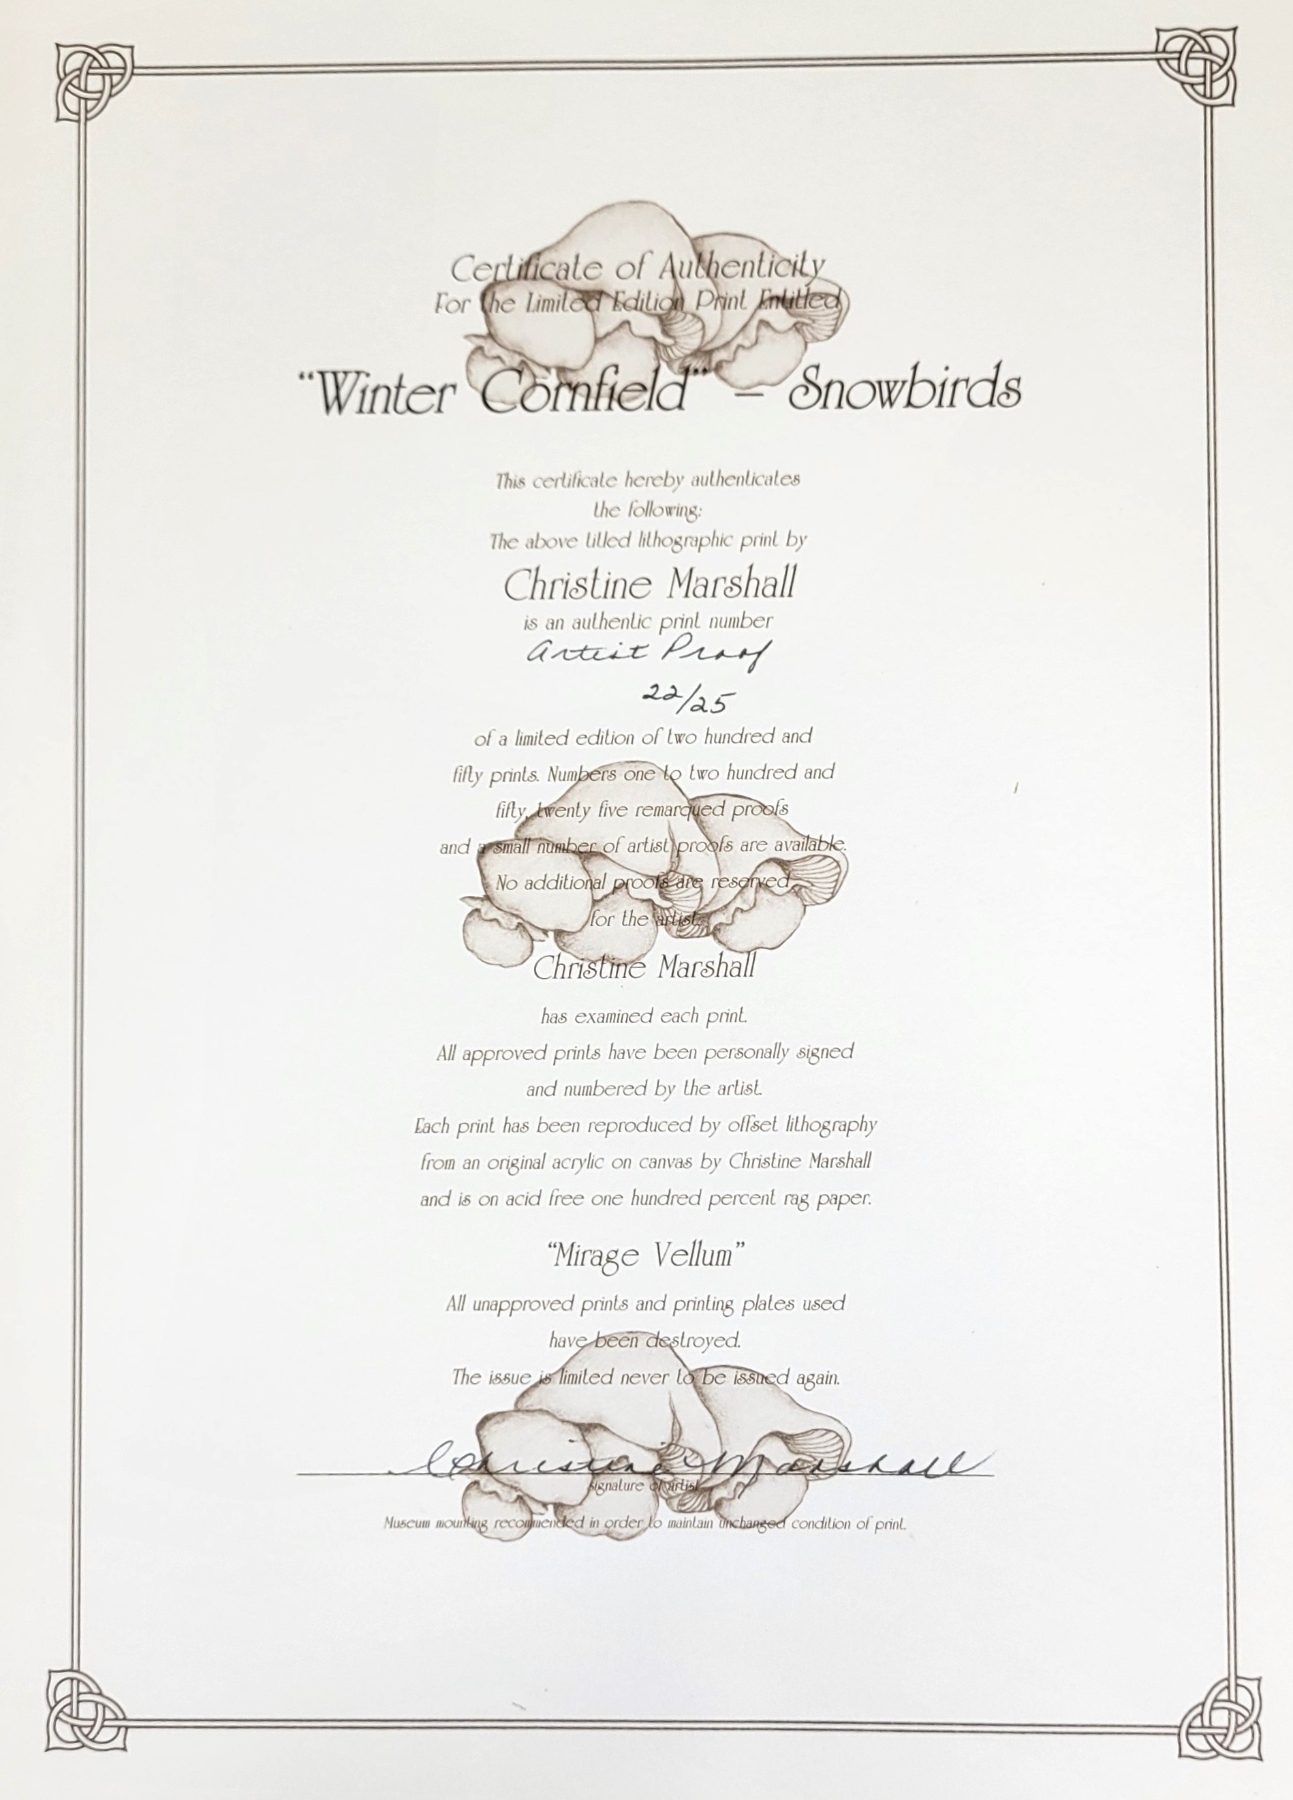 Certificate of Authenticity
For the Limited Edition Print Entitled
“Winter Cornfield” – Snowbirds
This certificate hereby authenticates
the following:
The above titled lithographic print by
Christine Marshall
is an authentic print number
Artist Proof
22/25
of a limited edition of two hundred and
fifty prints. Numbers one to two hundred and
fifty, twenty five remarqued proofs
and a small number of artist proofs are available.
No additional proofs are reserved
for the artist.
Christine Marshall
has examined each print.
All approved prints have been personally signed
and numbered by the artist.
Each print has been reproduced by offset lithography
from an original acrylic on canvas by Christine Marshall
and is on acid free one hundred percent rag paper.
“Mirage Vellum”
All unapproved prints and printing plates used
have been destroyed.
The issue is limited never to be issued again.
Christine Marshall
signature of artist
Museum mounting recommended in order to maintain unchanged condition of print.